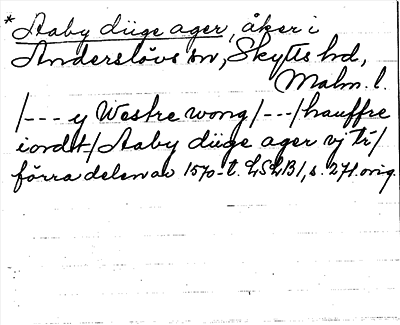 * Aaby diige ager, åker i
Anderslövs sn, Skytts hd,
Malm. l.
/--- y Westre wong/---/hauffre
iordt-/Aaby diige ager vj tr/
förra delen av 1570-t. LSLB1, s. 271. orig.